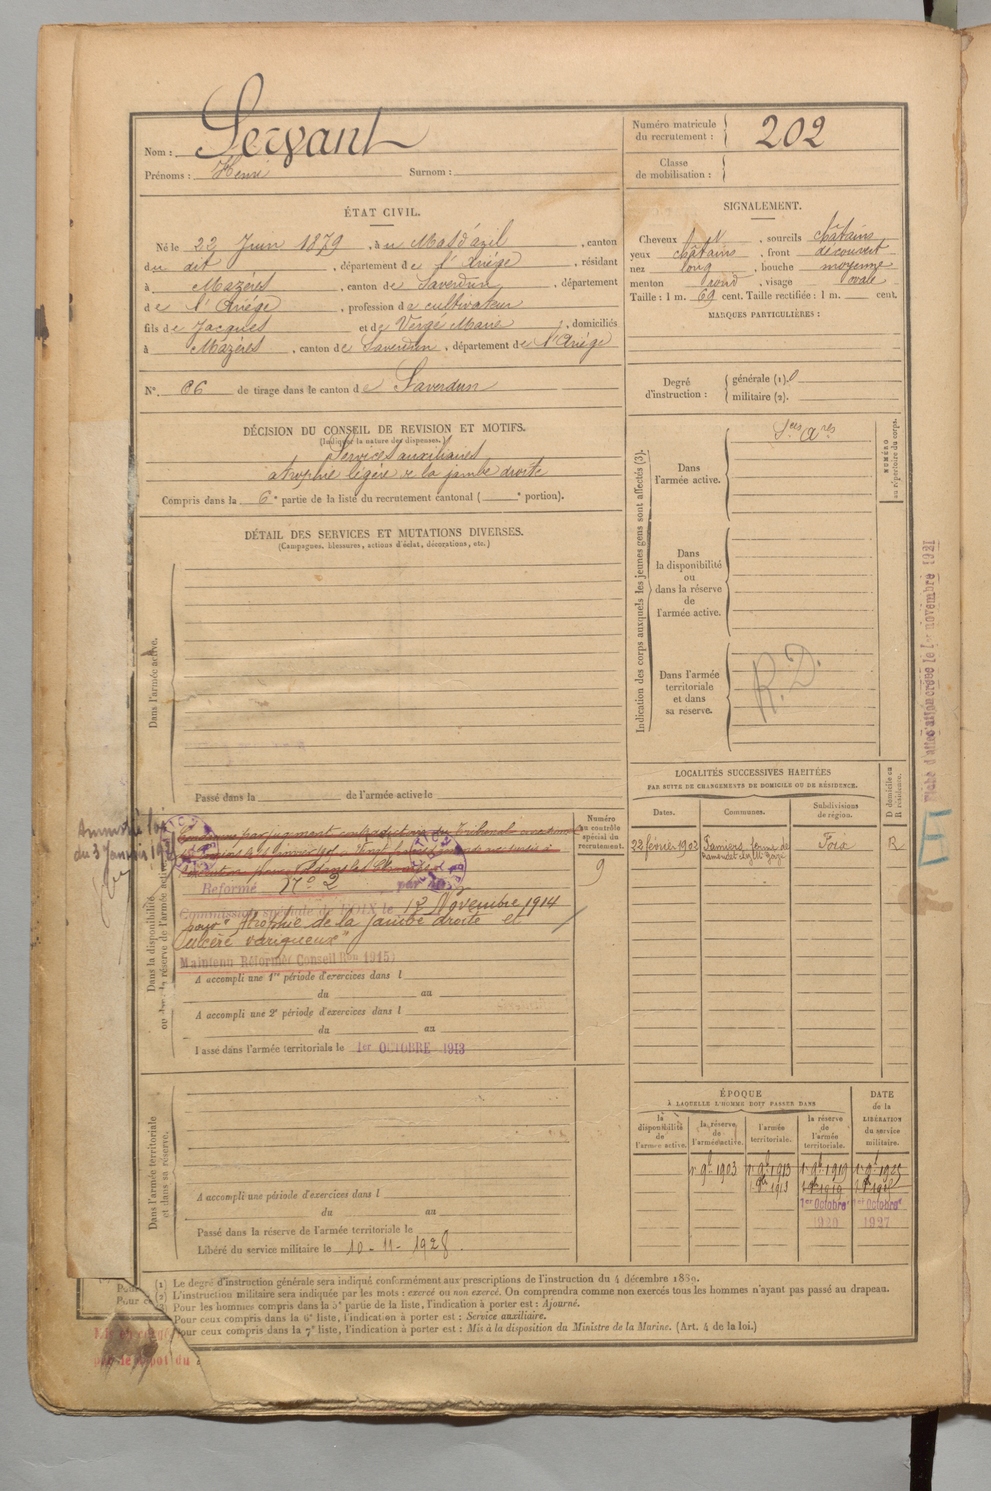 Nom : Servant
Prénoms : Henri Surnom :
Numéro matricule du recrutement : 202
Classe de mobilisation :
ÉTAT CIVIL.
Né le 22 Juin 1879, à u Mas d'azil, canton
du dit, département de l'Ariège, résidant
à Mazères, canton de Saverdun, département
de l'Ariège, profession de cultivateur
fils de Jacques et de Vergé Marie, domiciliés
à Mazères, canton de Saverdun, département de l'Ariège
N° 66 de tirage dans le canton de Saverdun
SIGNALEMENT.
Cheveux , sourcils châtains
yeux châtains, front découvert
nez long, bouche moyenne
menton rond, visage ovale
Taille : 1 m. 69 cent. Taille rectifiée : 1 m. cent.
MARQUES PARTICULIÈRES :
Degré d'instruction : générale (1).
militaire (2).
DÉCISION DU CONSEIL DE REVISION ET MOTIFS.
(Indiquer la nature des dispenses.)
Services auxiliaires
atrophie légère de la jambe droite
Compris dans la 6e partie de la liste du recrutement cantonal ( e portion).
DÉTAIL DES SERVICES ET MUTATIONS DIVERSES.
(Campagnes, blessures, actions d'éclat, décorations, etc.)
Dans l'armée active.
Passé dans la de l'armée active le
Indication des corps auxquels les jeunes gens sont affectés (3).
NUMÉRO au répertoire du corps.
Dans l'armée active.
Sces ares
Dans la disponibilité ou dans la réserve de l'armée active.
Dans l'armée territoriale et dans sa réserve.
R.D.
Fiche d'affectation créée le 1er novembre 1921
Amnistié loi
du 3 Janvier
Dans la disponibilité
ou dans la réserve de l'armée active
Numéro au contrôle spécial du recrutement.
9
par jugement contradictoire du Tribunal
Réformé N° 2
Commission spéciale de FOIX le 17 Novembre 1914
pour "Atrophie de la jambe droite et
ulcère variqueux"
Maintenu Réformé Conseil Ron 1915
A accompli une 1re période d'exercices dans l
du au
A accompli une 2e période d'exercices dans l
du au
Passé dans l'armée territoriale le 1er OCTOBRE 1913
LOCALITÉS SUCCESSIVES HABITÉES
PAR SUITE DE CHANGEMENTS DE DOMICILE OU DE RÉSIDENCE.
Dates. Communes. Subdivisions de région. D domicile ou R résidence.
22 février 1902 Pamiers, ferme de Foix R
Dans l'armée territoriale
et dans sa réserve.
A accompli une période d'exercices dans l
du au
Passé dans la réserve de l'armée territoriale le
Libéré du service militaire le 10-11-1928.
ÉPOQUE
À LAQUELLE L'HOMME DOIT PASSER DANS
DATE de la LIBÉRATION du service militaire.
la disponibilité de l'armée active. la réserve de l'armée active. l'armée territoriale. la réserve de l'armée territoriale.
1er 9bre 1903 1er 9bre 1913 1er 9bre 1919
1er Octobre 1er Octobre
1920 1927
(1) Le degré d'instruction générale sera indiqué conformément aux prescriptions de l'instruction du 4 décembre 1889.
(2) L'instruction militaire sera indiquée par les mots : exercé ou non exercé. On comprendra comme non exercés tous les hommes n'ayant pas passé au drapeau.
(3) Pour les hommes compris dans la 5e partie de la liste, l'indication à porter est : Ajourné.
Pour ceux compris dans la 6e liste, l'indication à porter est : Service auxiliaire.
Pour ceux compris dans la 7e liste, l'indication à porter est : Mis à la disposition du Ministre de la Marine. (Art. 4 de la loi.)